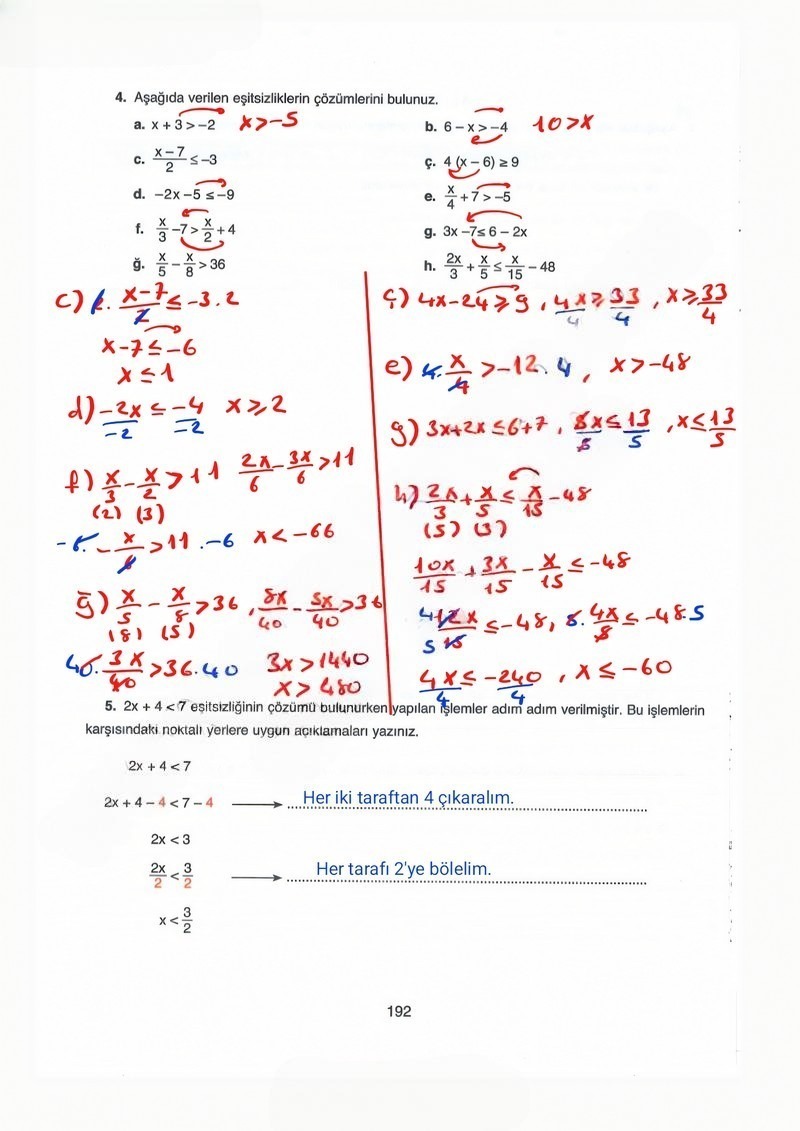 4. Aşağıda verilen eşitsizliklerin çözümlerini bulunuz.
a. x + 3 > -2 x > -5
b. 6 - x > -4 10 > x
c. (x - 7)/2 ≤ -3
ç. 4 (x - 6) ≥ 9
d. -2x - 5 ≤ -9
e. x/4 + 7 > -5
f. x/3 - 7 > x/2 + 4
g. 3x - 7 ≤ 6 - 2x
ğ. x/5 - x/8 > 36
h. 2x/3 + x/5 ≤ x/15 - 48
c) 2. (x-7)/2 ≤ -3.2
x-7 ≤ -6
x ≤ 1
d) -2x/-2 ≤ -4/-2 x ≥ 2
f) x/3 - x/2 > 11 2x/6 - 3x/6 > 11
(2) (3)
-6. -x/6 > 11 .-6 x < -66
ğ) x/5 - x/8 > 36, 8x/40 - 5x/40 > 36
(8) (5)
40. 3x/40 > 36.40 3x > 1440
x > 480
ç) 4x-24 ≥ 9, 4x/4 ≥ 33/4, x ≥ 33/4
e) 4. x/4 > -12.4, x > -48
g) 3x+2x ≤ 6+7, 5x/5 ≤ 13/5, x ≤ 13/5
h) 2x/3 + x/5 ≤ x/15 - 48
(5) (3)
10x/15 + 3x/15 - x/15 ≤ -48
4 12x/15 5 ≤ -48, 5. 4x/5 ≤ -48.5
4x/4 ≤ -240/4, x ≤ -60
5. 2x + 4 < 7 eşitsizliğinin çözümü bulunurken yapılan işlemler adım adım verilmiştir. Bu işlemlerin
karşısındaki noktalı yerlere uygun açıklamaları yazınız.
2x + 4 < 7
2x + 4 - 4 < 7 - 4 → Her iki taraftan 4 çıkaralım.
2x < 3
2x/2 < 3/2 → Her tarafı 2'ye bölelim.
x < 3/2
192